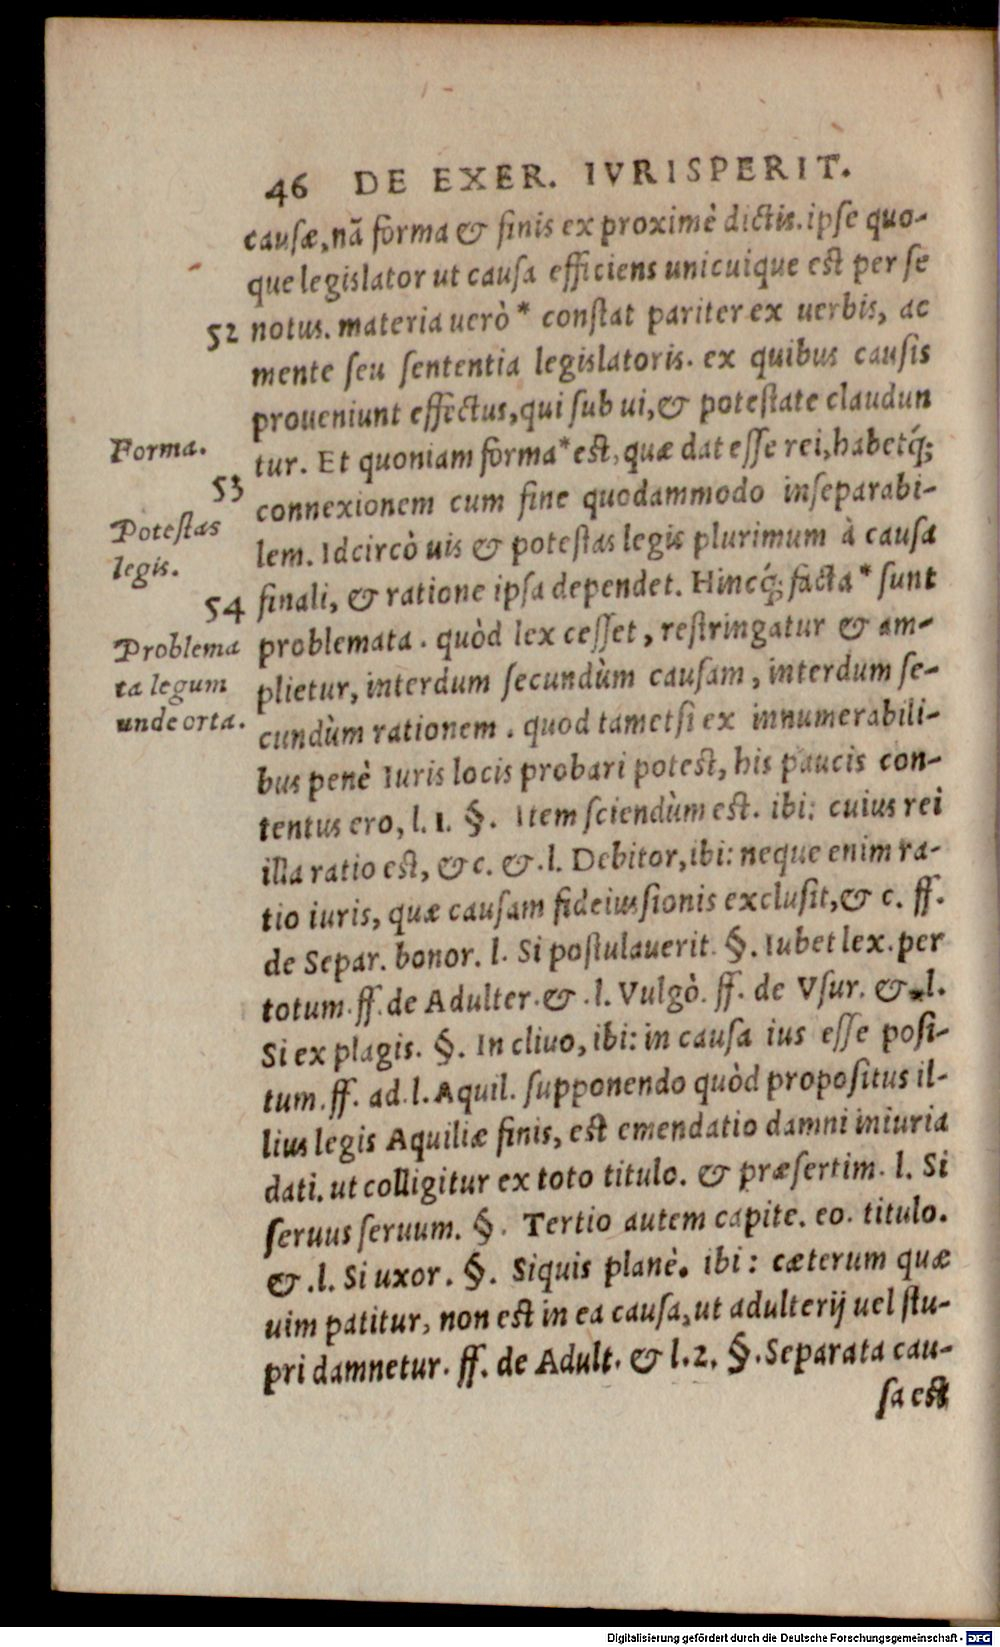 46 DE EXER. IVRISPERIT.
causæ, nã forma & finis ex proximè dictis. ipse quo-
que legislator ut causa efficiens unicuique est per se
52 notus. materia uerò* constat pariter ex uerbis, ac
mente seu sententia legislatoris. ex quibus causis
proueniunt effectus, qui sub ui, & potestate claudun
Forma.
tur. Et quoniam forma* est, quæ dat esse rei, habetq́;
53
connexionem cum fine quodammodo inseparabi-
Potestas
legis.
lem. Idcircò uis & potestas legis plurimum à causa
54 finali, & ratione ipsa dependet. Hincq́; facta* sunt
Problema
ta legum
unde orta.
problemata. quòd lex cesset, restringatur & am-
plietur, interdum secundùm causam, interdum se-
cundùm rationem. quod tametsi ex innumerabili-
bus penè Iuris locis probari potest, his paucis con-
tentus ero, l. 1. §. Item sciendùm est. ibi: cuius rei
illa ratio est, & c. &. l. Debitor, ibi: neque enim ra-
tio iuris, quæ causam fideiussionis exclusit, & c. ff.
de Separ. bonor. l. Si postulauerit. §. Iubet lex. per
totum. ff. de Adulter. &. l. Vulgò. ff. de Vsur. &. l.
Si ex plagis. §. In cliuo, ibi: in causa ius esse posi-
tum. ff. ad. l. Aquil. supponendo quòd propositus il-
lius legis Aquiliæ finis, est emendatio damni iniuria
dati. ut colligitur ex toto titulo. & præsertim. l. Si
seruus seruum. §. Tertio autem capite. eo. titulo.
&. l. Si uxor. §. Siquis planè. ibi: cæterum quæ
uim patitur, non est in ea causa, ut adulterij uel stu-
pri damnetur. ff. de Adult. & l. 2. §. Separata cau-
sa est
Digitalisierung gefördert durch die Deutsche Forschungsgemeinschaft - DFG